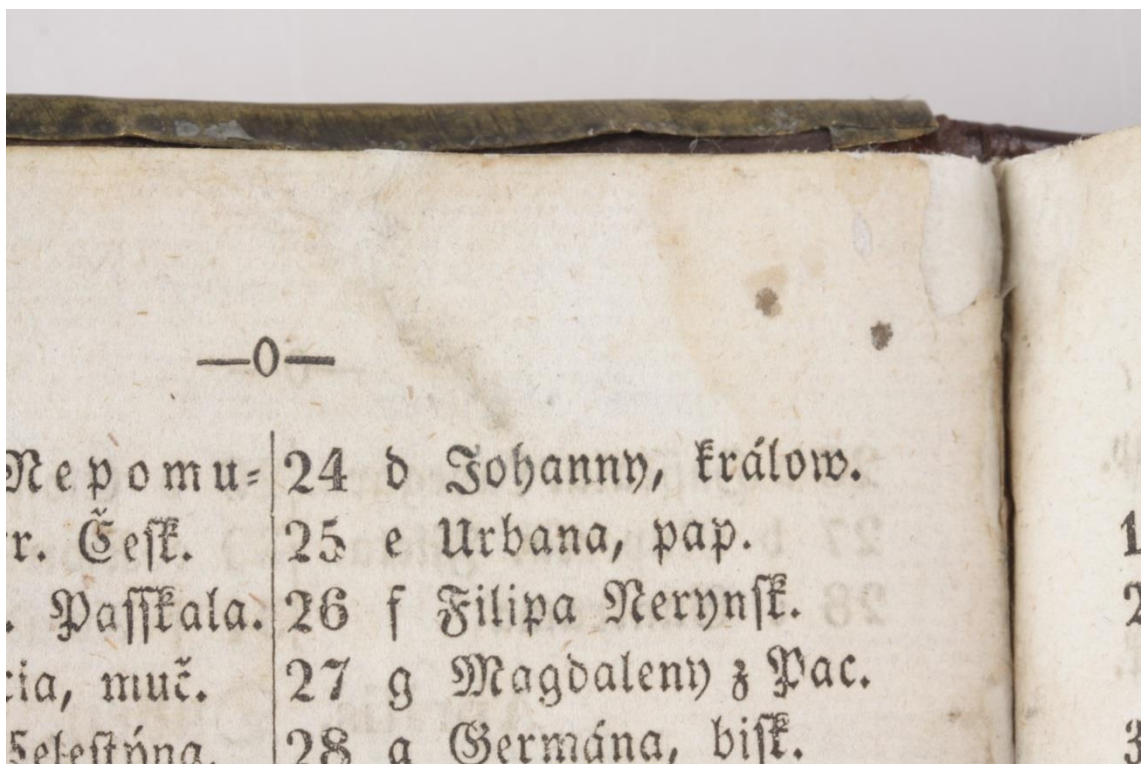 —0—
Nepomu-
r. Česk.
. Passkala.
cia, muč.
Celestýna.
24 d Johanny, králow.
25 e Urbana, pap.
26 f Filipa Nerynsk.
27 g Magdaleny z Pac.
28 a Germána, bisk.
1
2
3